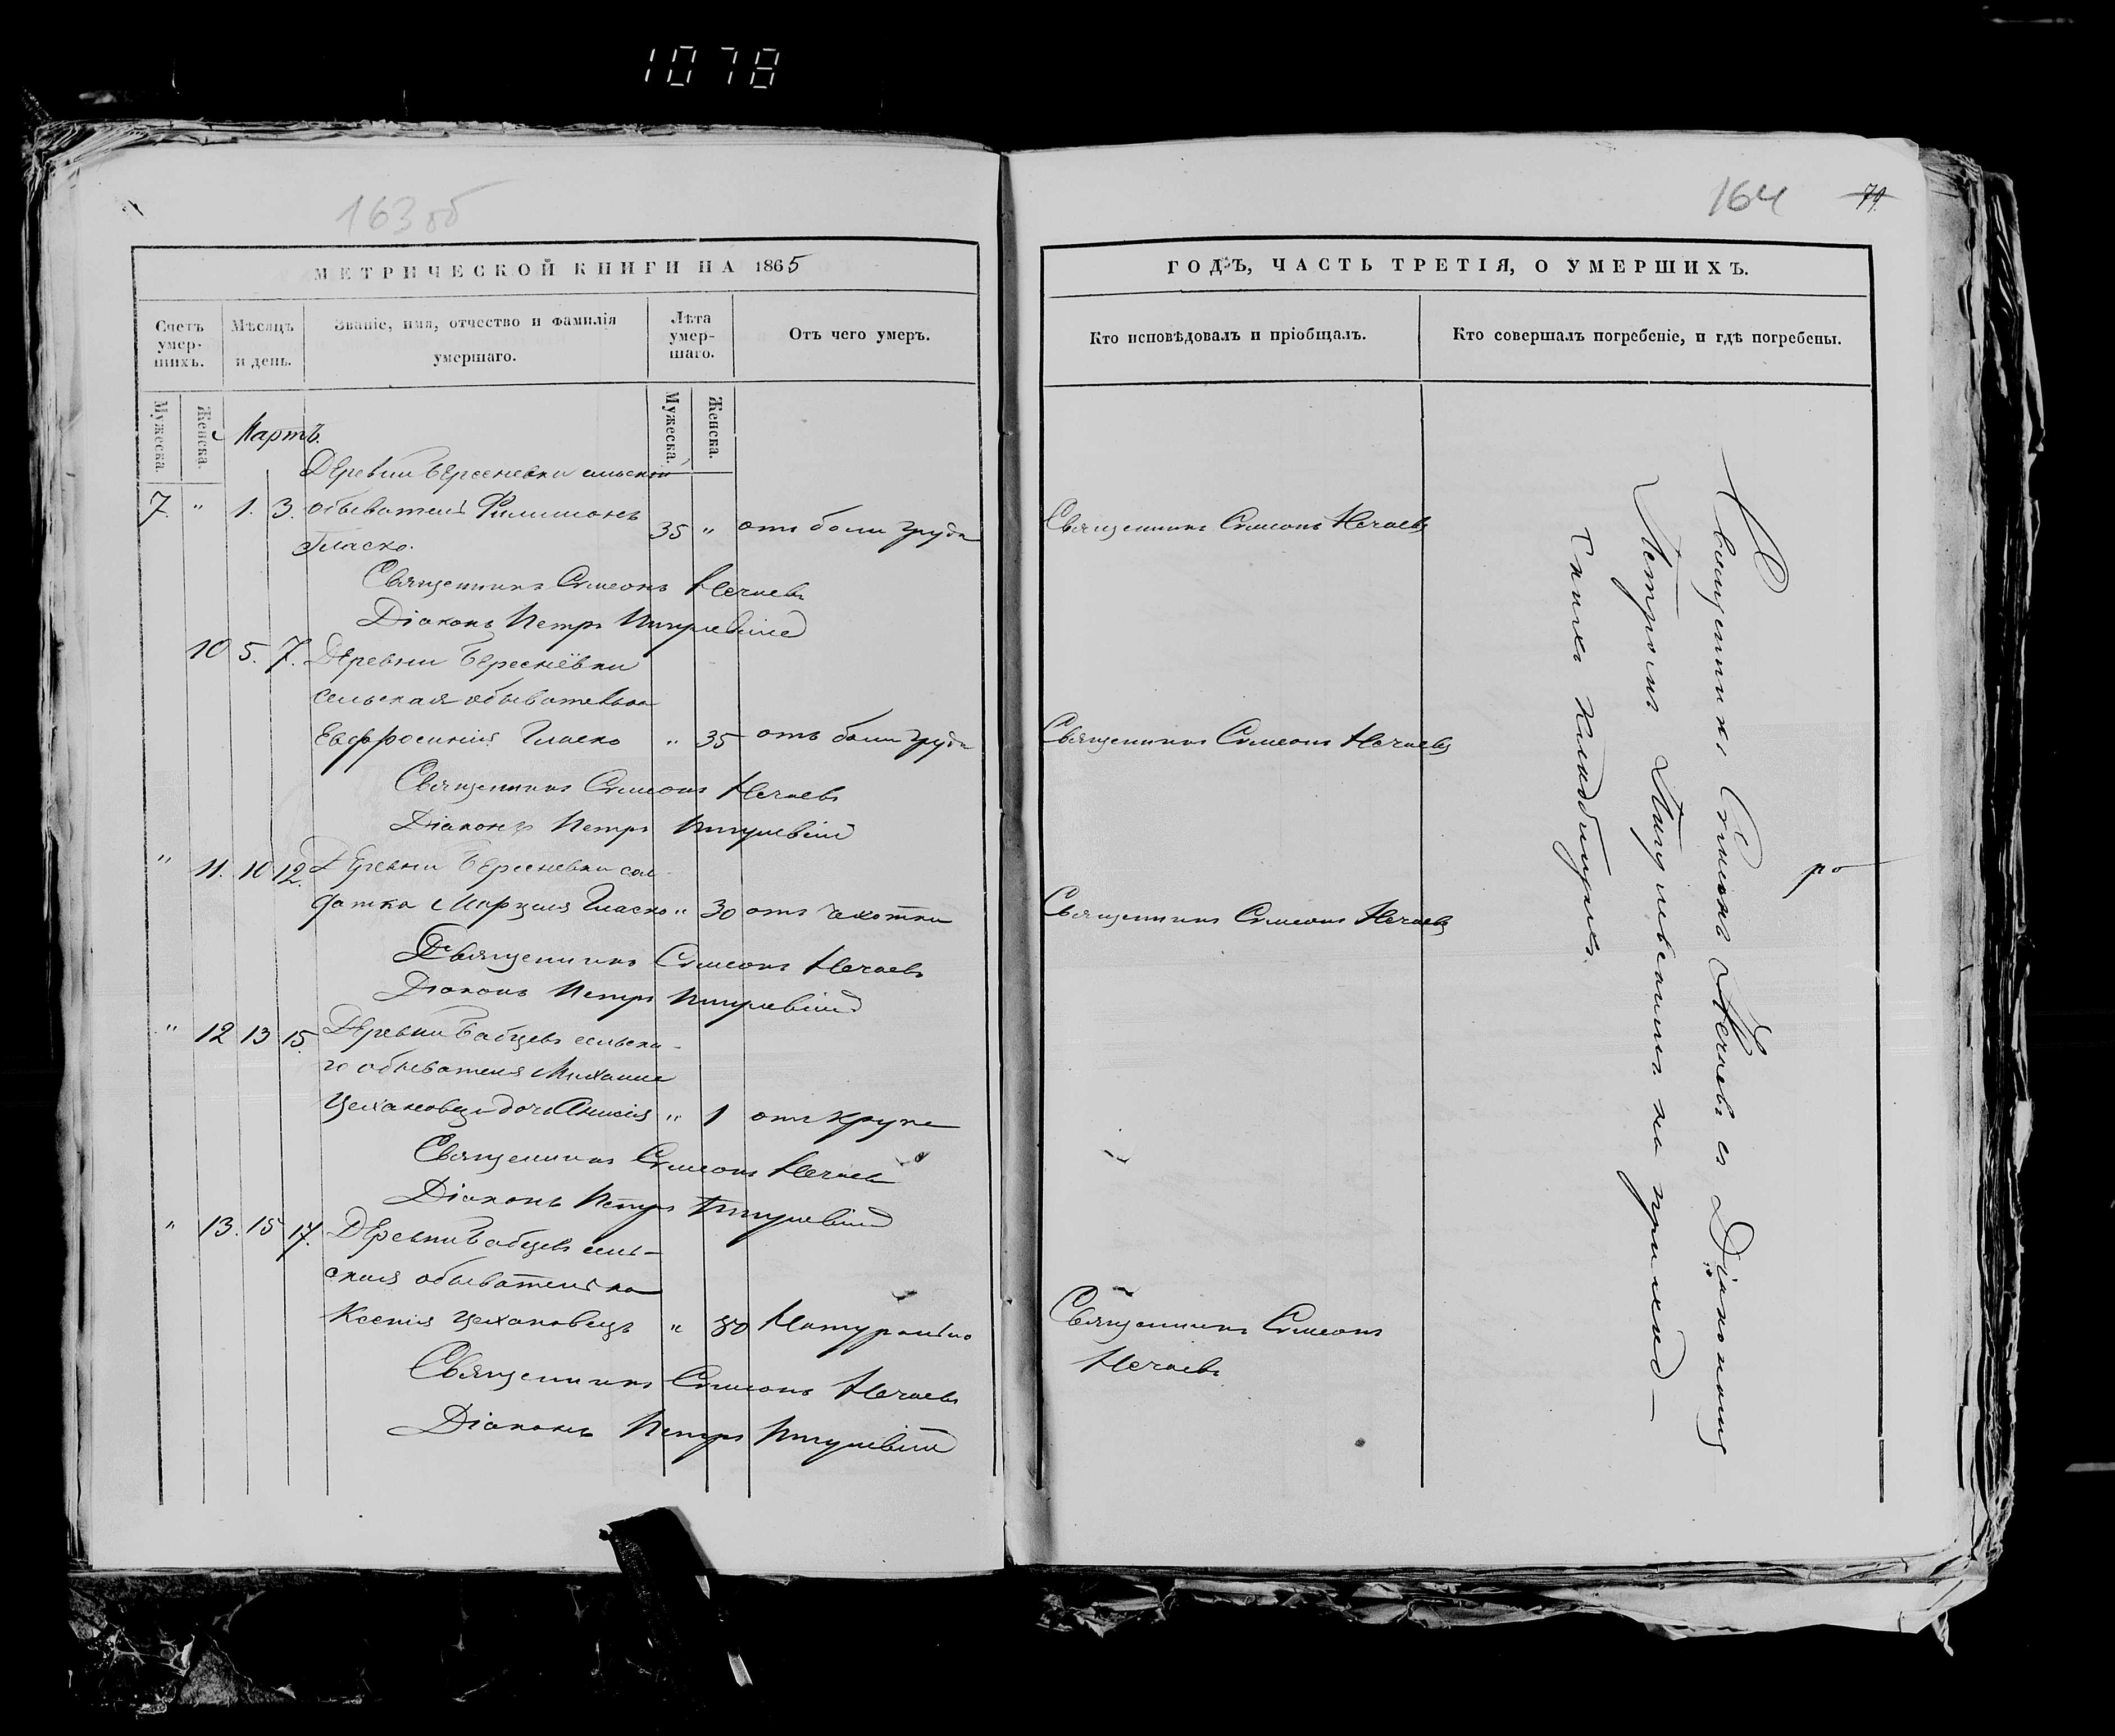 1078
163 об
МЕТРИЧЕСКОЙ КНИГИ НА 1865
Счетъ умер-шихъ.
Мѣсяцъ и день.
Званіе, имя, отчество и фамилія умершаго.
Лѣта умер-шаго.
Отъ чего умеръ.
Мужеска.
Женска.
Мужеска.
Женска.
Мартъ.
Деревни Береснёвки сельскій
7. " 1. 3. обыватель Филимонъ
Гласко. 35 " отъ боли груди
Священникъ Симеонъ Нечаевъ
Діаконъ Петръ
10 5. 7. Деревни Береснёвки
сельская обывателька
Евфросинія Гласко " 35 отъ боли груди
Священникъ Симеонъ Нечаевъ
Діаконъ Петръ
" 11. 10 12. Деревни Береснёвки сол-
датка Гласко " 30 отъ чахотки
Священникъ Симеонъ Нечаевъ
Діаконъ Петръ
" 12 13 15. Деревни Бабцевъ сельска-
го обывателя Михаила
Цехановца дочь Анисія " 1 отъ крупа
Священникъ Симеонъ Нечаевъ
Діаконъ Петръ
" 13. 15 17. Деревни Бабцевъ сель-
ская обывателька
Ксенія Цехановецъ " 80 Натурально
Священникъ Симеонъ Нечаевъ
Діаконъ Петръ
164 79
ГОДЪ, ЧАСТЬ ТРЕТІЯ, О УМЕРШИХЪ.
Кто исповѣдовалъ и пріобщалъ.
Кто совершалъ погребеніе, и гдѣ погребены.
Священникъ Симеонъ Нечаевъ
Священникъ Симеонъ Нечаевъ
Священникъ Симеонъ Нечаевъ
Священникъ Симеонъ
Нечаевъ
Священникъ Симеонъ Нечаевъ съ Діакономъ
Петромъ на приход-
скихъ кладбищахъ.
по